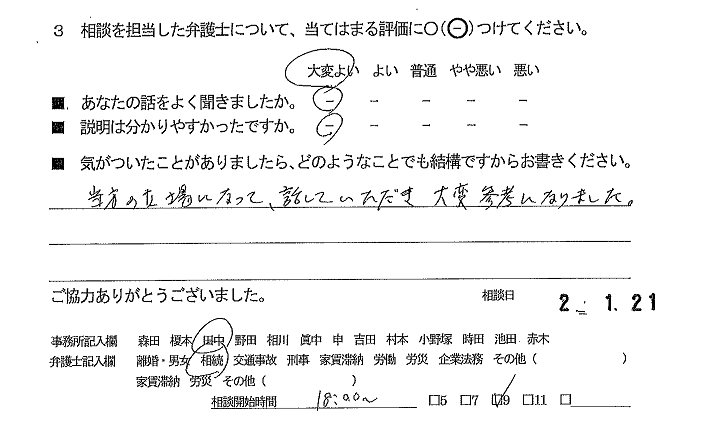 3 相談を担当した弁護士について、当てはまる評価に〇(㊀)つけてください。
大変よい よい 普通 やや悪い 悪い
■ あなたの話をよく聞きましたか。 － － － － －
■ 説明は分かりやすかったですか。 － － － － －
■ 気がついたことがありましたら、どのようなことでも結構ですからお書きください。
当方の立場になって、話していただき 大変参考になりました。
ご協力ありがとうございました。 相談日 2. 1.21
事務所記入欄 森田 榎本 田中 野田 相川 眞中 申 吉田 村本 小野塚 時田 池田 赤木
弁護士記入欄 離婚・男女 相続 交通事故 刑事 家賃滞納 労働 労災 企業法務 その他（ ）
家賃滞納 労災 その他（ ）
相談開始時間 18:00～ □5 □7 □9 □11 □